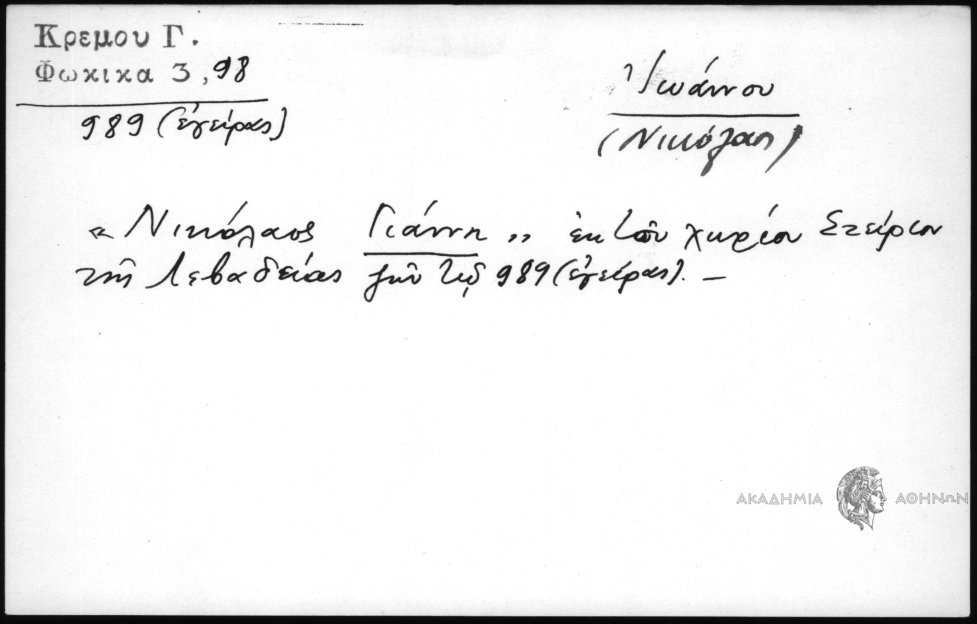 Κρεμου Γ.
Φωκικα 3, 98
989 (ἐγείρας)
Ἰωάννου
(Νικόλαος)
« Νικόλαος Γιάννη „ ἐκ τοῦ χωρίου Στείριον
τῆς Λεβαδείας ἐν τῷ 989 (ἐγείρας). —
ΑΚΑΔΗΜΙΑ ΑΘΗΝΩΝ